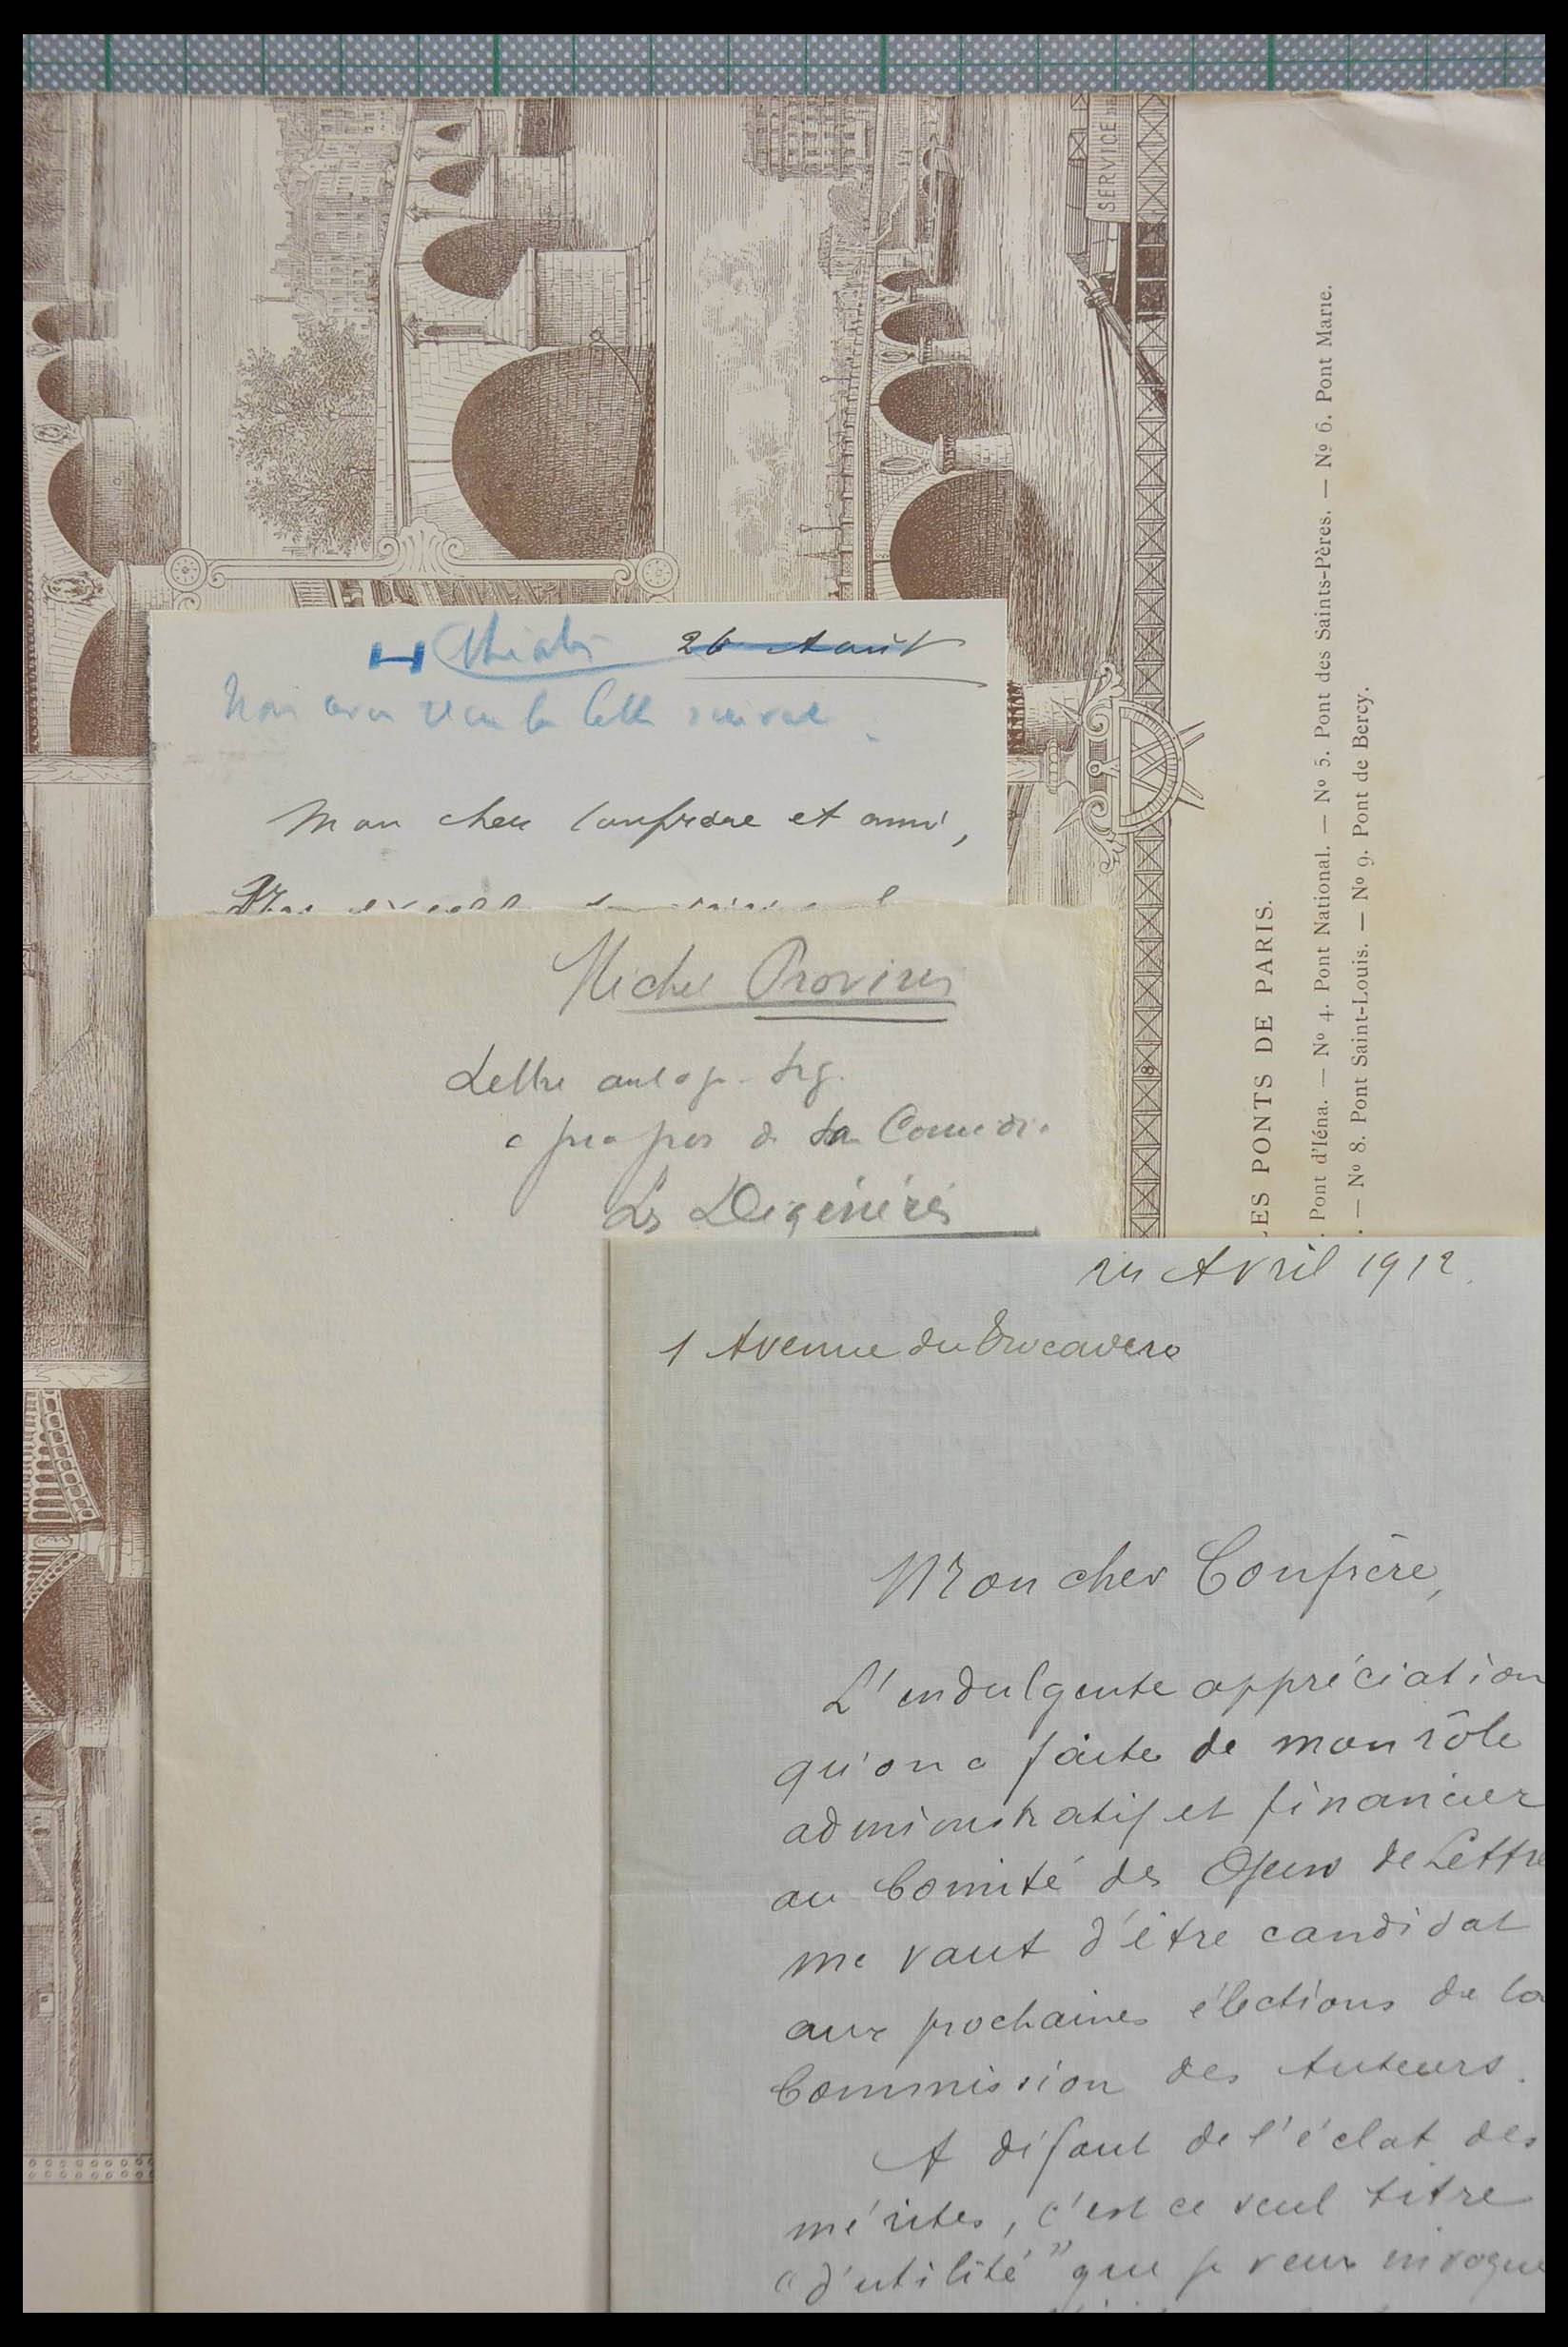 SERVICE
LES PONTS DE PARIS.
Pont d'Iéna. — Nº 4. Pont National. — Nº 5. Pont des Saints-Pères. — Nº 6. Pont Marie.
. — Nº 8. Pont Saint-Louis. — Nº 9. Pont de Bercy.
26 Août
Mon cher Confrère et ami,
Michel Provins
Lettre autog. sig.
a propos de sa Comedie
Les Dégénérés
Avril 1912.
1 Avenue du Trocadero
Mon cher Confrère,
L'indulgente appréciation
qu'on a faite de mon rôle
administratif et financier
au Comité des Gens de Lettre
me vaut d'être candidat
aux prochaines élections de la
Commission des Auteurs.
A défaut de l'éclat des
mérites, c'est ce seul titre
"d'utilité" que je veux invoque